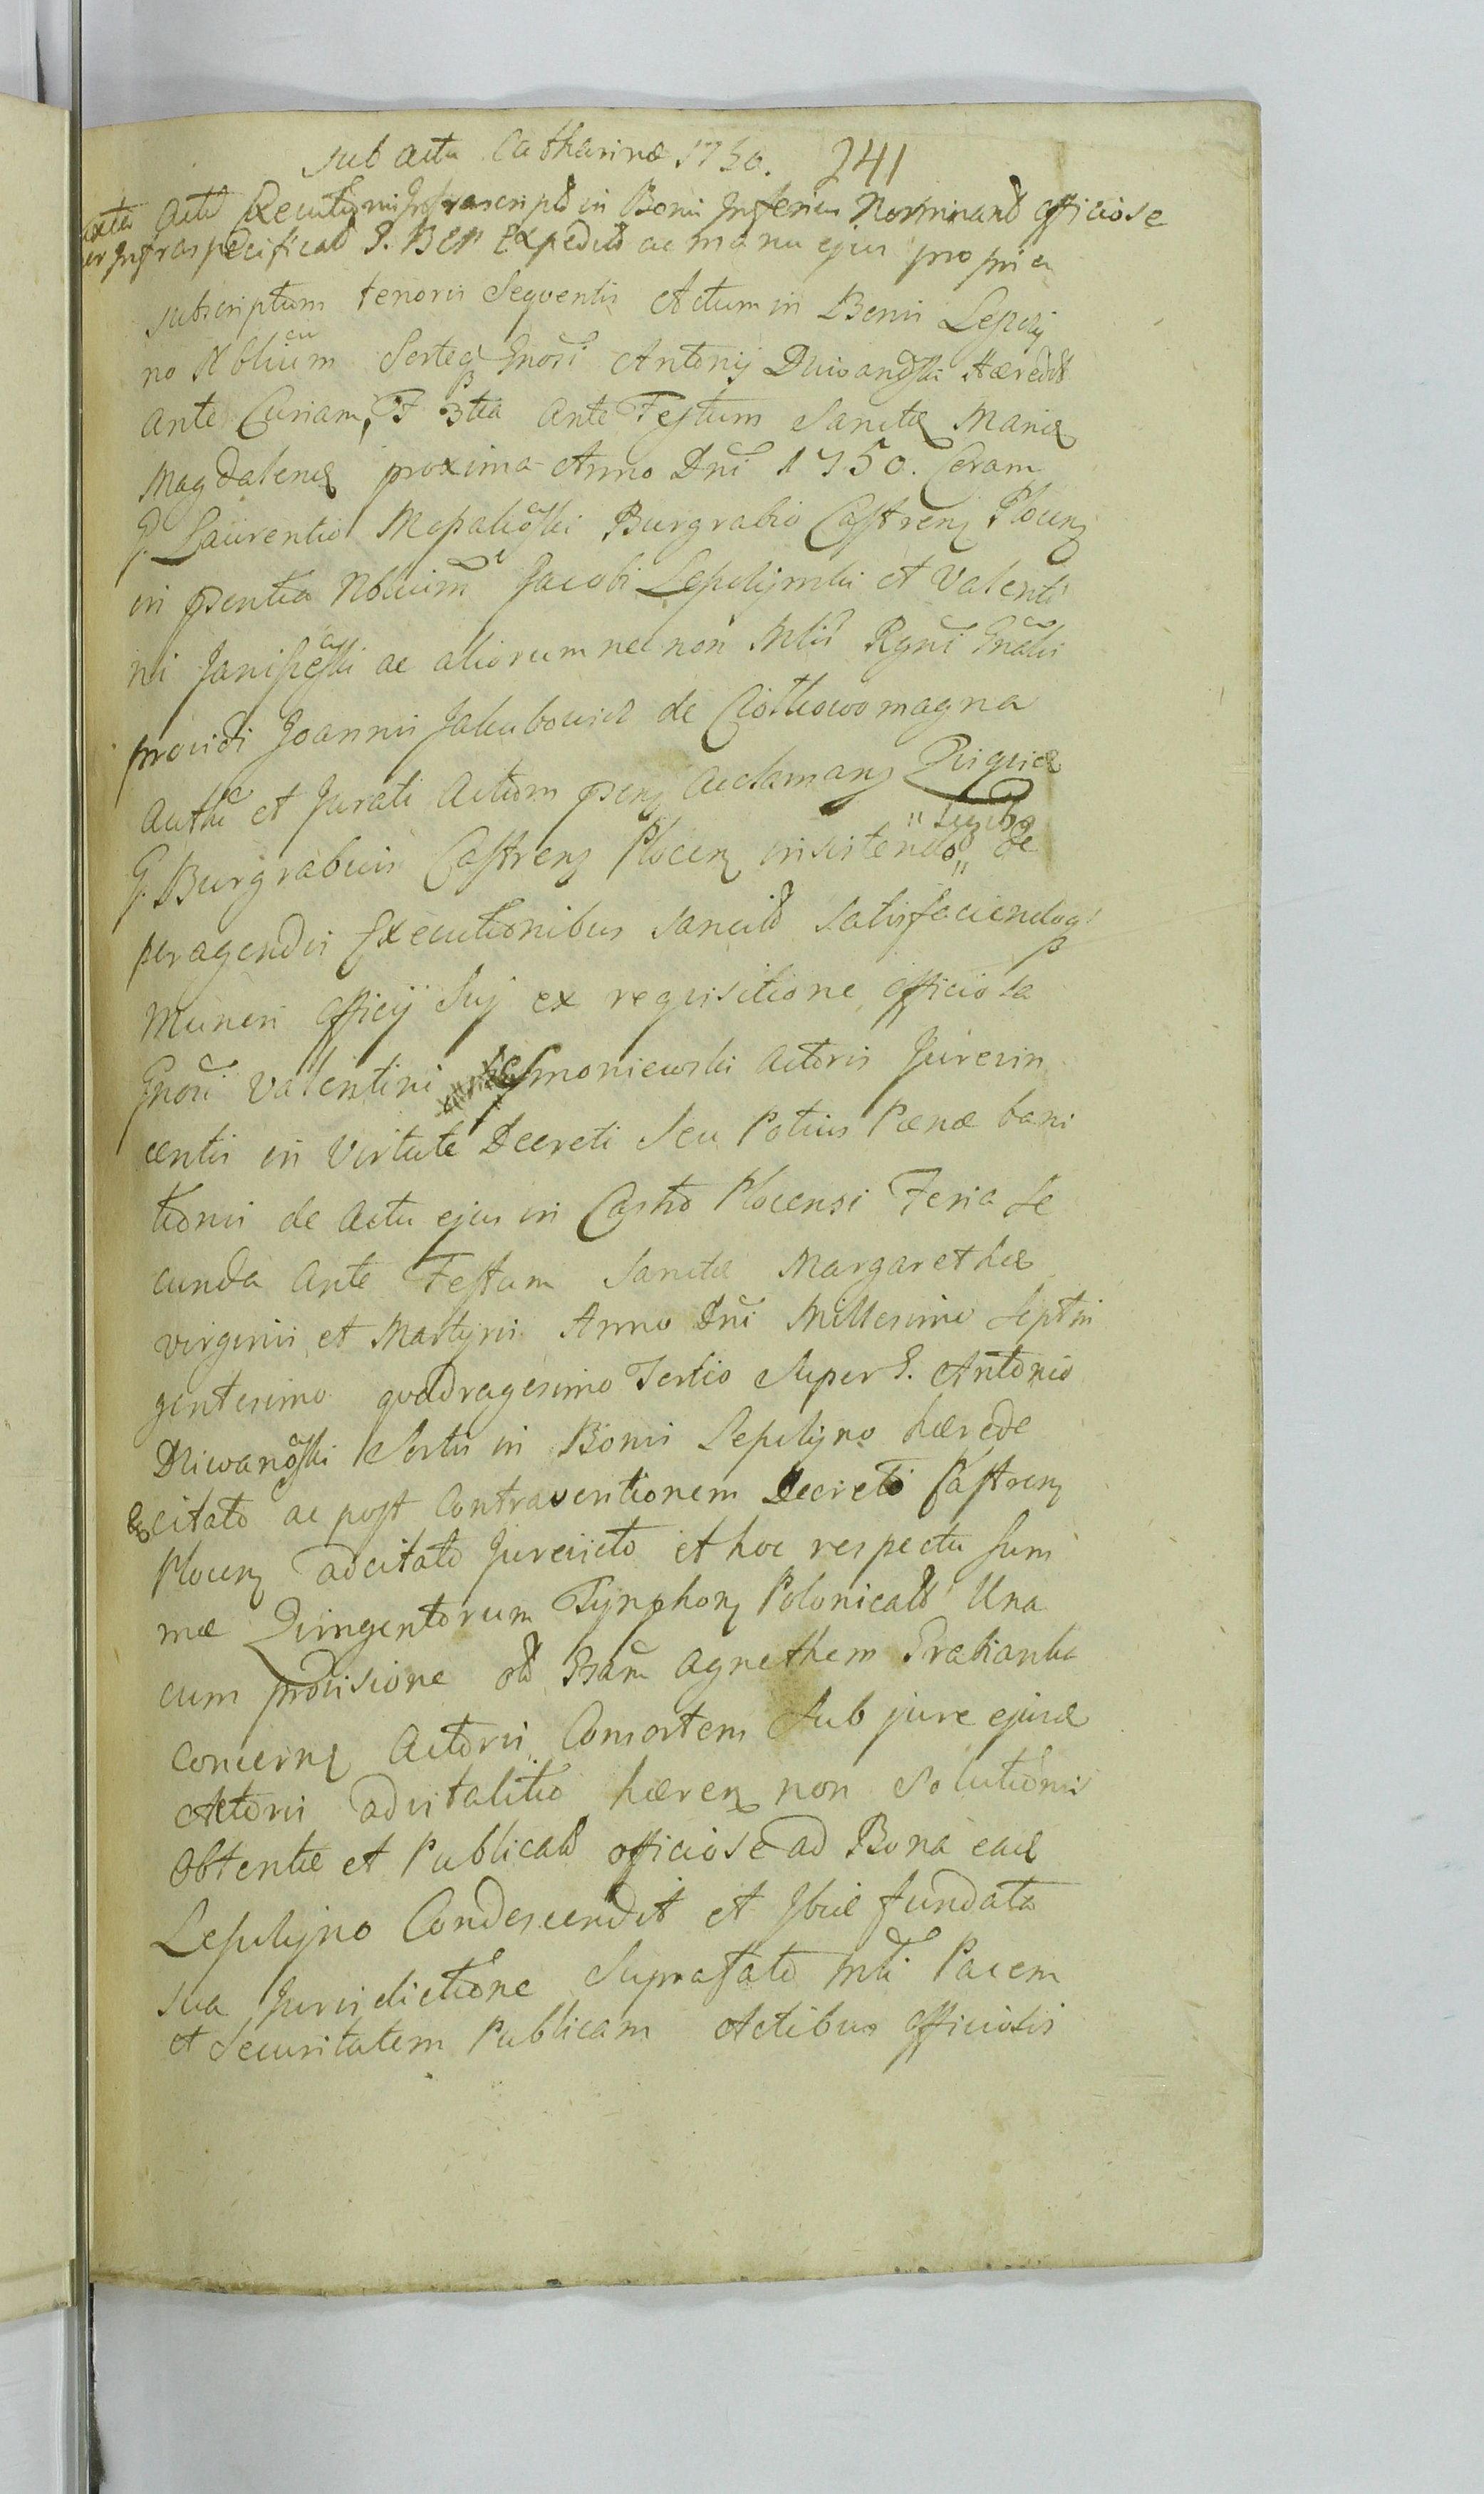 sub actu Catharinæ 1750. 241
Juxta Actū Executionis Infrascriptū in Bonis Inferius Norminand officiose
per Infraspecificatū G. Bur Expeditū ac manu ejus propria
subscriptum tenoris Seqventis Actum in Bonis Lepczy
no Nobilium Sorteq Gnosi Antonij Dziwanowski Hæredit
Ante Curiam, F 3tia Ante Festum Sanctæ Mariæ
Magdalenæ proxima Anno Dni 1750. Coram
G. Laurentio Burgrabio Castrens Plocens
in pntia Nobilium Jacobi Lepczynski et Valenti
ni Janiszewski ac aliorum nec non Mlis Regni Gnalis
providi Joannis Jakubowicz de Ciołkowo magna
Auth et Jurati Actum pens Aclamans Qui quidē
G. Burgrabius Castrens Plocens insistendo Legibus de
peragendis Executionibus sancitis satisfaciendoq
muneri officij Suj ex reqvisitione officiosa
Gnosi Valentini Szymoniewski Actoris Jurevin
centis in virtute Decreti Seu Potius Pœnæ bani
tionis de Actu ejus in Castro Plocensi Feria Se
cunda Ante Festum Sanctæ Margarethæ
virginis et Martyris Anno Dni Millesimo Septin
gentesimo qvadragesimo Tertio Super G. Antonio
Dziwanowski Sortis in Bonis Lepczyno hærede
citato ac post Contraventionem Decreto Castrens
Plocens adcitato Jurevicto et hoc respectu Sum
mæ Qvingentorum Tynphons Polonicalū Una
cum provisione ob Agnethem
concerns Actoris Consortem Sub jure ejusd
Actoris advitalitio hærens non Solutionis
Obtentæ et Publicatæ officiose ad Bona ead
Lepczyno Condescendit et Ibid fundata
sua Jurisdictione Suprafato Mli Pacem
et Securitatem Publicam Actibus officiosis